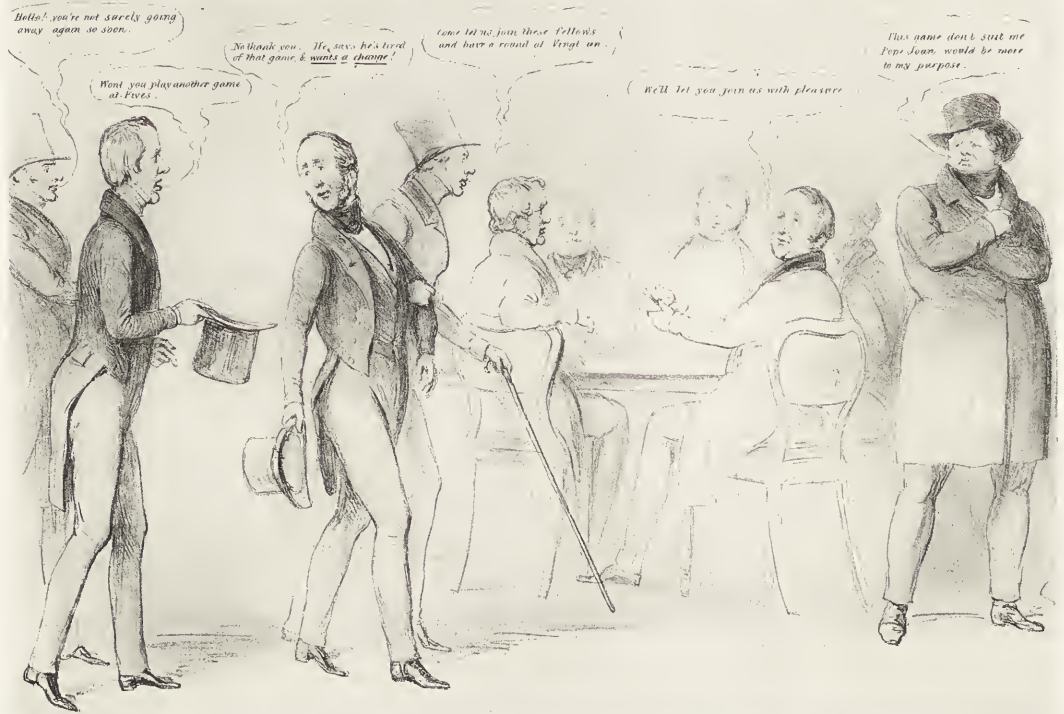 Hollo! you're not surely going
away again so soon.
Wont you play another game
at Fives.
No thank you. He says he's tired
of that game, & wants a change!
Come let us join these fellows
and have a round at Vingt un.
We'll let you join us with pleasure
This game don't suit me
Pope Joan would be more
to my purpose.